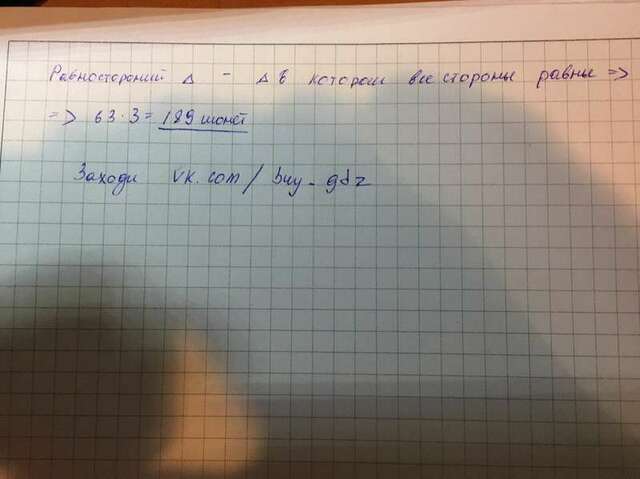 Равносторонний Δ - Δ в котором все стороны равны =>
=> 63·3= 189 монет
Заходи vk.com/buy_gdz